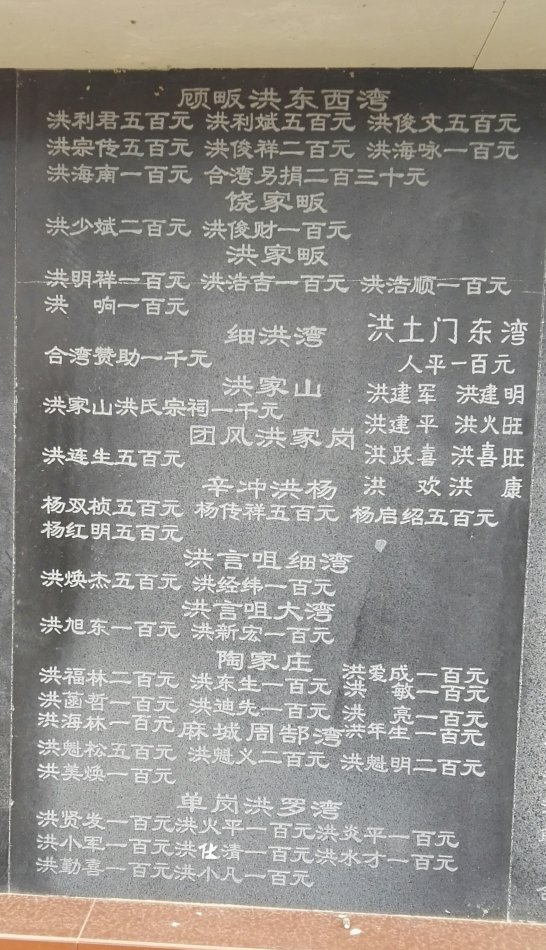 顾畈洪东西湾
洪利君五百元 洪利斌五百元 洪俊文五百元
洪宗传五百元 洪俊祥二百元 洪海咏一百元
洪海南一百元 合湾另捐二百三十元
饶家畈
洪少斌二百元 洪俊财一百元
洪家畈
洪明祥一百元 洪浩吉一百元 洪浩顺一百元
洪 响一百元
细洪湾
合湾赞助一千元
洪家山
洪家山洪氏宗祠一千元
团风洪家岗
洪连生五百元
洪土门东湾
人平一百元
洪建军 洪建明
洪建平 洪火旺
洪跃喜 洪喜旺
洪 欢 洪 康
辛冲洪杨
杨双桢五百元 杨传祥五百元 杨启绍五百元
杨红明五百元
洪言咀细湾
洪焕杰五百元 洪经纬一百元
洪言咀大湾
洪旭东一百元 洪新宏一百元
陶家庄
洪福林二百元 洪东生一百元 洪爱成一百元
洪菡哲一百元 洪迪先一百元 洪 敏一百元
洪海林一百元 洪 亮一百元
洪年生一百元
麻城周郜湾
洪魁松五百元 洪魁义二百元 洪魁明二百元
洪美焕一百元
单岗洪罗湾
洪贤发一百元 洪火平一百元 洪炎平一百元
洪小军一百元 洪仕清一百元 洪水才一百元
洪勤喜一百元 洪小凡一百元